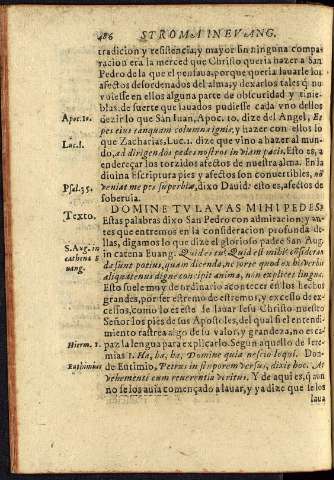 486 STROMA IN EVANG.
tradicion y resistencia, y mayor sin ninguna compa-
racion era la merced que Christo queria hazer a San
Pedro de la que el pensaua, porque queria lauarle los
afectos desordenados del alma, y dexarlos tales q̃ nu
uiesse en ellos alguna parte de obscuridad, y tinie-
blas, de suerte que lauados pudiesse cada vno dellos
Apoc. 10. dezir lo que San Iuan, Apoc. 10. dize del Angel, Et
pes eius tanquam columna ignis, y hazer con ellos lo
Luc. 1. que Zacharias, Luc. 1. dize que vino a hazer al mun-
do, ad dirigendos pedes nostros in viam pacis. Esto es, a
enderezar los torzidos afectos de nuestra alma. En la
diuina Escriptura pies y afectos son conuertibles, no
Psal. 35. veniat me pes superbiæ, dixo Dauid: esto es, afectos de
soberuia.
Texto. DOMINE TV LAVAS MIHI PEDES?
Estas palabras dixo San Pedro con admiracion; y an-
tes que entremos en la consideracion profunda de-
S. Aug. in llas, digamos lo que dize el glorioso padre San Aug.
cathena E in catena Euang. Quid es tu? Quid est mihi?
uang. desunt potius, quam dicenda, ne forte quod ex his verbis
aliquatenus digne concipit anima, non explicet lingua.
Esto suele muy de ordinario acontecer en los hechos
grandes, por ser estremo de estremos, y excesso de ex-
cessos, como lo es este de lauar Iesu Christo nuestro
Señor los pies de sus Apostoles, del qual si el entendi-
miento rastrea algo de su valor, y grandeza, no es ca-
Hierm. 1. paz la lengua para explicarlo. Segun aquello de Ier-
mias 1. Ha, ha, ha, Domine quia nescio loqui. Don-
Euthimius de Eutimio, Petrus in stuporem versus, dixit hoc. At
vehementi eum reuerentia veritus. Y de aqui es, q̃ aun
no se los auia començado a lauar, y ya dize que le los
laua